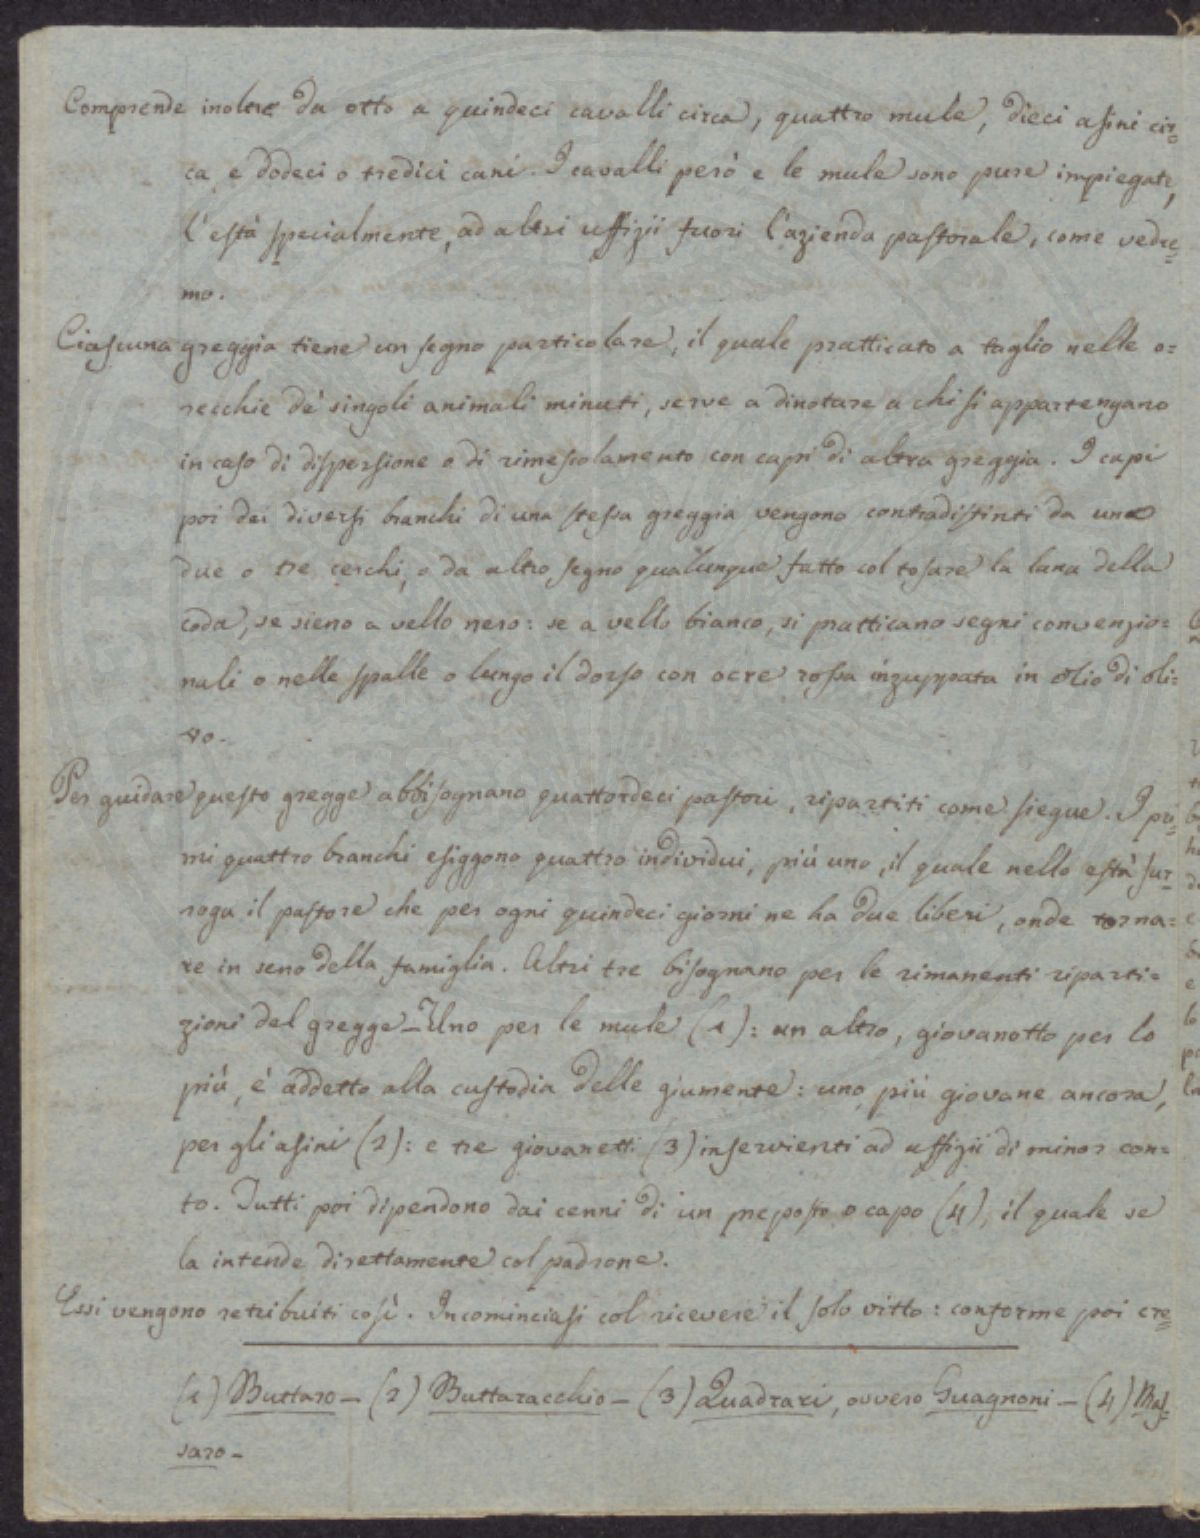 Comprende inoltre da otto a quindeci cavalli circa, quattro mule, dieci asini cir=
ca e dodeci o tredici cani. I cavalli però e le mule sono pure impiegate,
l'està specialmente, ad altri uffizii fuori l'azienda pastorale, come vedre=
mo.
Ciascuna greggia tiene un segno particolare, il quale pratticato a taglio nelle o=
recchie de' singoli animali minuti, serve a dinotare a chi si appartengano
in caso di dispersione o di rimescolamento con capi di altra greggia. I capi
poi dei diversi branchi di una stessa greggia vengono contradistinti da uno
due o tre cerchi, o da altro segno qualunque fatto col tosare la lana della
coda, se sieno a vello nero: se a vello bianco, si pratticano segni convenzio=
nali o nelle spalle o lungo il dorso con ocre rossa inzuppata in olio di oli=
vo.
Per guidare questo gregge abbisognano quattordeci pastori, ripartiti come siegue. I pri=
mi quattro branchi esiggono quattro individui, più uno, il quale nello està sur=
roga il pastore che per ogni quindeci giorni ne ha due liberi, onde torna=
re in seno della famiglia. Altri tre bisognano per le rimanenti riparti=
zioni del gregge_Uno per le mule (1): un altro, giovanotto per lo
più, è addetto alla custodia delle giumente: uno più giovane ancora,
per gli asini (2): e tre giovanetti (3) inservienti ad uffizii di minor con=
to. Tutti poi dipendono dai cenni di un preposto o capo (4), il quale se
la intende direttamente col padrone.
Essi vengono retribuiti così. Incominciasi col ricevere il solo vitto: conforme poi cre=
(1) Buttaro _ (2) Buttaracchio _ (3) Quadrari, ovvero Guagnoni _ (4) Mas=
saro _